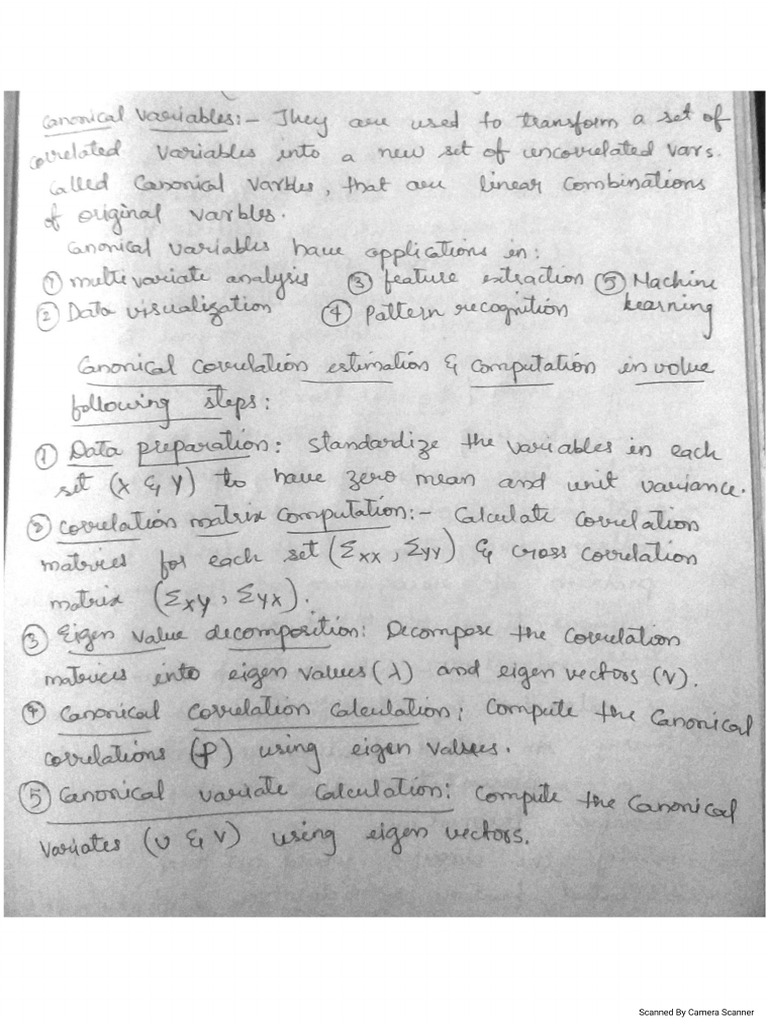 Canonical Variables:- They are used to transform a set of
correlated variables into a new set of uncorrelated vars.
called Canonical Varbles, that are linear combinations
of original varbles.
Canonical variables have applications in:
① multivariate analysis ③ feature extraction ⑤ Machine
② Data visualization ④ Pattern recognition Learning
Canonical Correlation estimation & Computation involve
following steps:
① Data preparation: Standardize the variables in each
set (X & Y) to have zero mean and unit variance.
② Correlation matrix Computation:- Calculate Correlation
matrices for each set (Σxx, Σyy) & cross correlation
matrix (Σxy, Σyx).
③ Eigen value decomposition: Decompose the Correlation
matrices into eigen values (λ) and eigen vectors (V).
④ Canonical Correlation Calculation: Compute the Canonical
correlations (ρ) using eigen values.
⑤ Canonical variate Calculation: Compute the Canonical
Variates (U & V) using eigen vectors.
Scanned By Camera Scanner